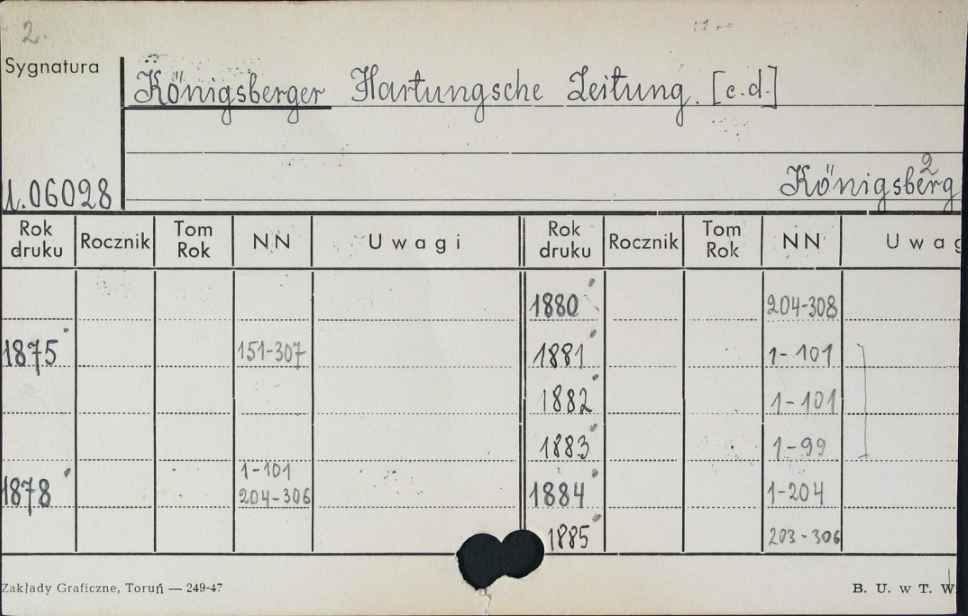 2.
Sygnatura
Königsberger Hartungsche Zeitung. [c.d.]
2
Königsberg
1.06028
Rok druku Rocznik Tom Rok NN Uwagi Rok druku Rocznik Tom Rok NN Uwag
1880 204-308
1875 151-307 1881 1-101
1882 1-101
1883 1-99
1-101
1878 204-306 1884 1-204
1885 203-306
Zakłady Graficzne, Toruń — 249-47 B. U. w T. W